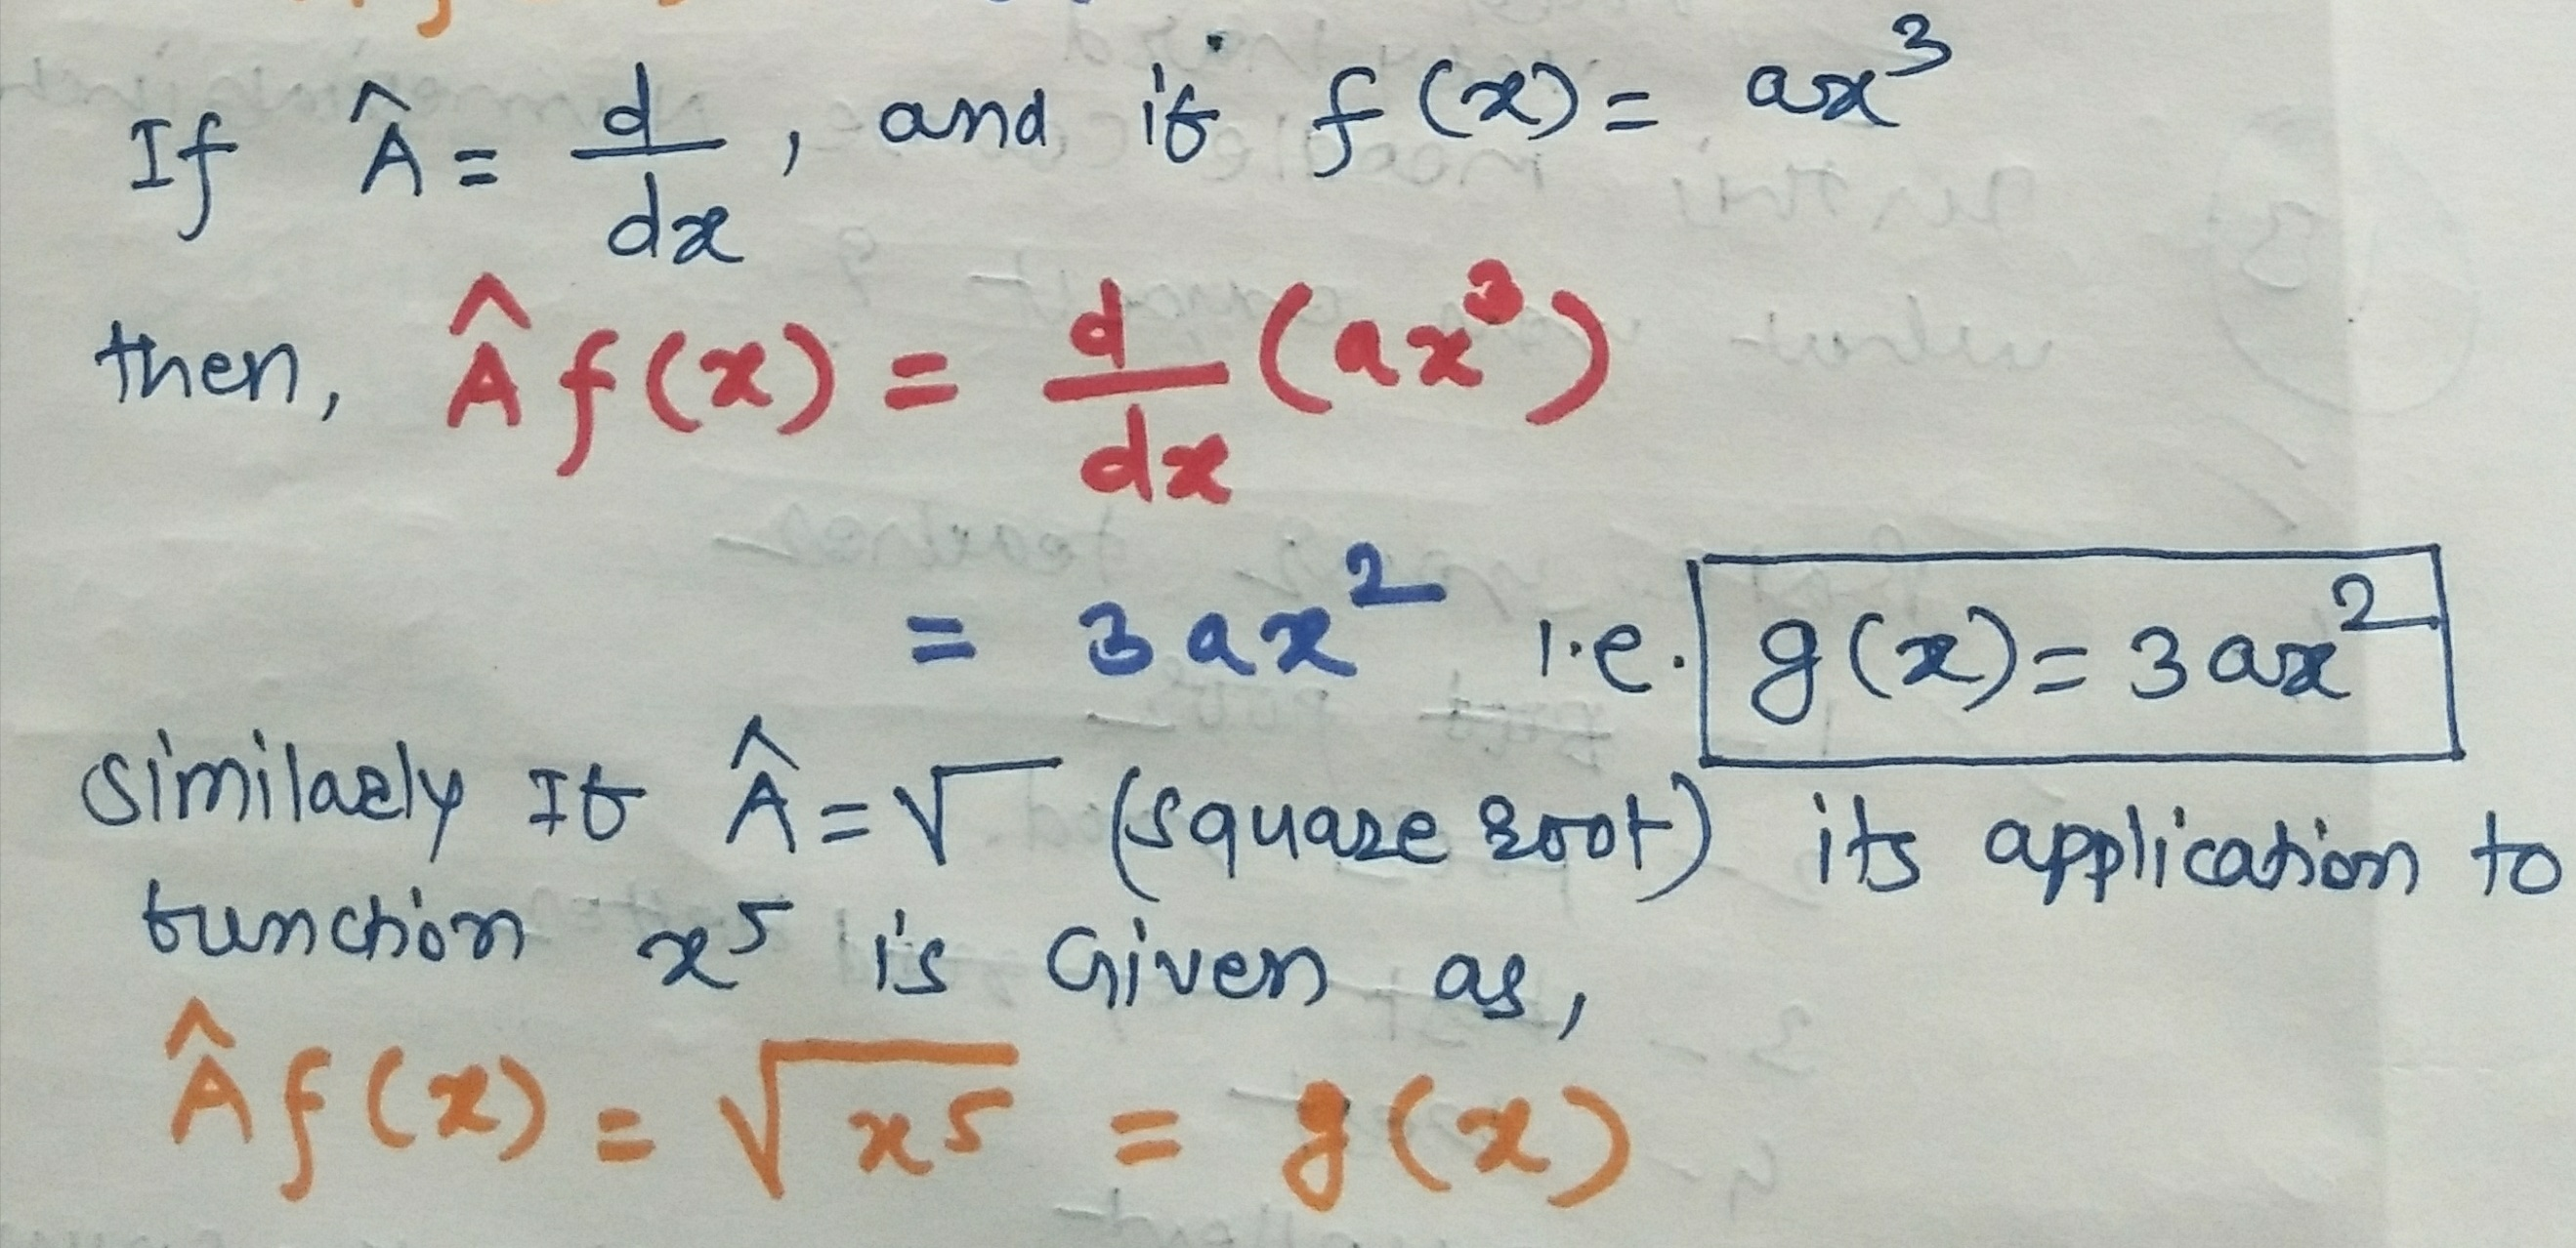 If Â = d/dx, and if f(x) = ax³
then, Âf(x) = d/dx (ax³)
= 3ax² i.e. g(x) = 3ax²
Similarly If Â = √ (square root) its application to
function x⁵ is Given as,
Âf(x) = √x⁵ = g(x)